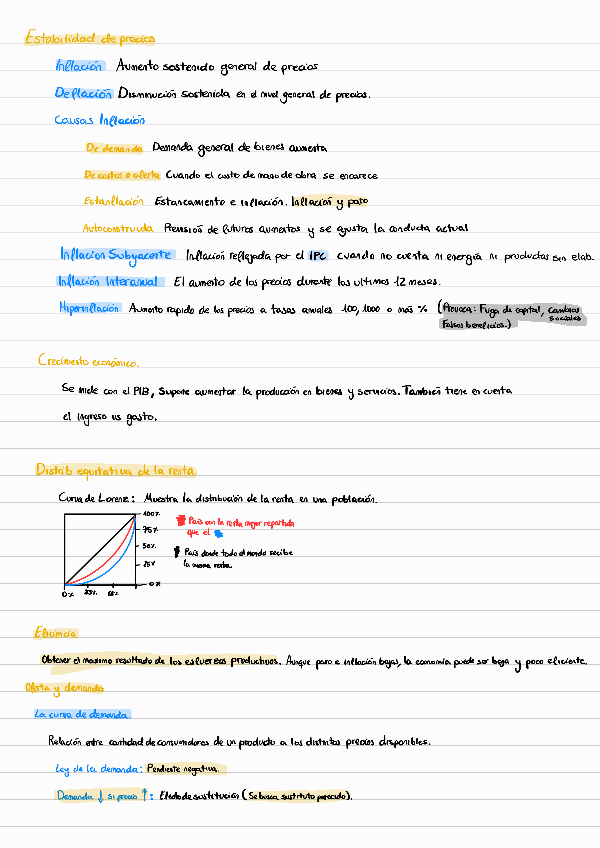 Estabilidad de precios
Inflación Aumento sostenido general de precios
Deflación Disminución sostenida en el nivel general de precios.
Causas Inflación
De demanda Demanda general de bienes aumenta
De costos o oferta Cuando el costo de mano de obra se encarece
Estanflación Estancamiento e inflación. Inflación y paro
Autoconstruida Previsión de futuros aumentos y se ajusta la conducta actual
Inflacion Subyacente Inflación reflejada por el IPC cuando no cuenta ni energía ni productos sin elab.
Inflación Interanual El aumento de los precios durante los ultimos 12 meses.
Hiperinflación Aumento rapido de los precios a tasas anuales 100, 1000 o más % (Provoca: Fuga de capital, cambios sociales
Falsos beneficios.)
Crecimiento económico.
Se mide con el PIB, supone aumentar la producción en bienes y servicios. También tiene en cuenta
el ingreso vs gasto.
Distrib equitativa de la renta.
Curva de Lorenz: Muestra la distribución de la renta en una población.
100%
75%
50%
25%
0%
0% 33% 66%
País con la renta mejor repartida
que el
País donde todo el mundo recibe
la misma renta.
Eficiencia
Obtener el maximo resultado de los esfuerzos productivos. Aunque paro e inflación bajas, la economía puede ser baja y poco eficiente.
Oferta y demanda
La curva de demanda.
Relación entre cantidad de consumidores de un producto a los distintos precios disponibles.
Ley de la demanda: Pendiente negativa.
Demanda ↓ si precio ↑: Efecto de sustitución (Se busca sustituto parecido).